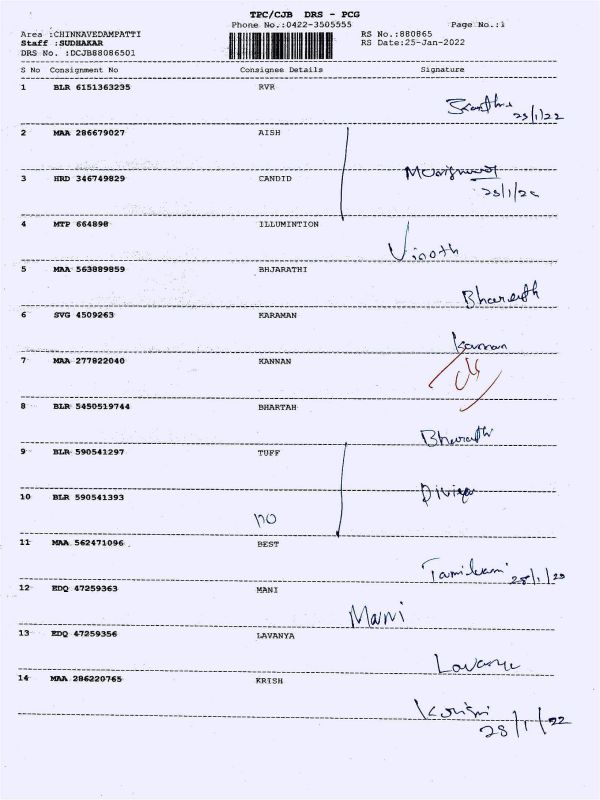 TPC/CJB DRS - PCG
Phone No.:0422-3505555
Page No.:1
Area :CHINNAVEDAMPATTI
RS No.:880865
Staff :SUDHAKAR
RS Date:25-Jan-2022
DRS No. :DCJB88086501
S No Consignment No Consignee Details Signature
1 BLR 6151363235 RVR
25/1/22
2 MAA 286679027 AISH
3 HRD 346749829 CANDID
4 MTP 664898 ILLUMINTION
Vinoth
5 MAA 563889859 BHJARATHI
Bharath
6 SVG 4509263 KARAMAN
Kannan
7 MAA 277822040 KANNAN
8 BLR 5450519744 BHARTAH
Bharathi
9 BLR 590541297 TUFF
10 BLR 590541393
Diviya
no
11 MAA 562471096 BEST
12 EDQ 47259363 MANI
Mani
13 EDQ 47259356 LAVANYA
Lavanya
14 MAA 286220765 KRISH